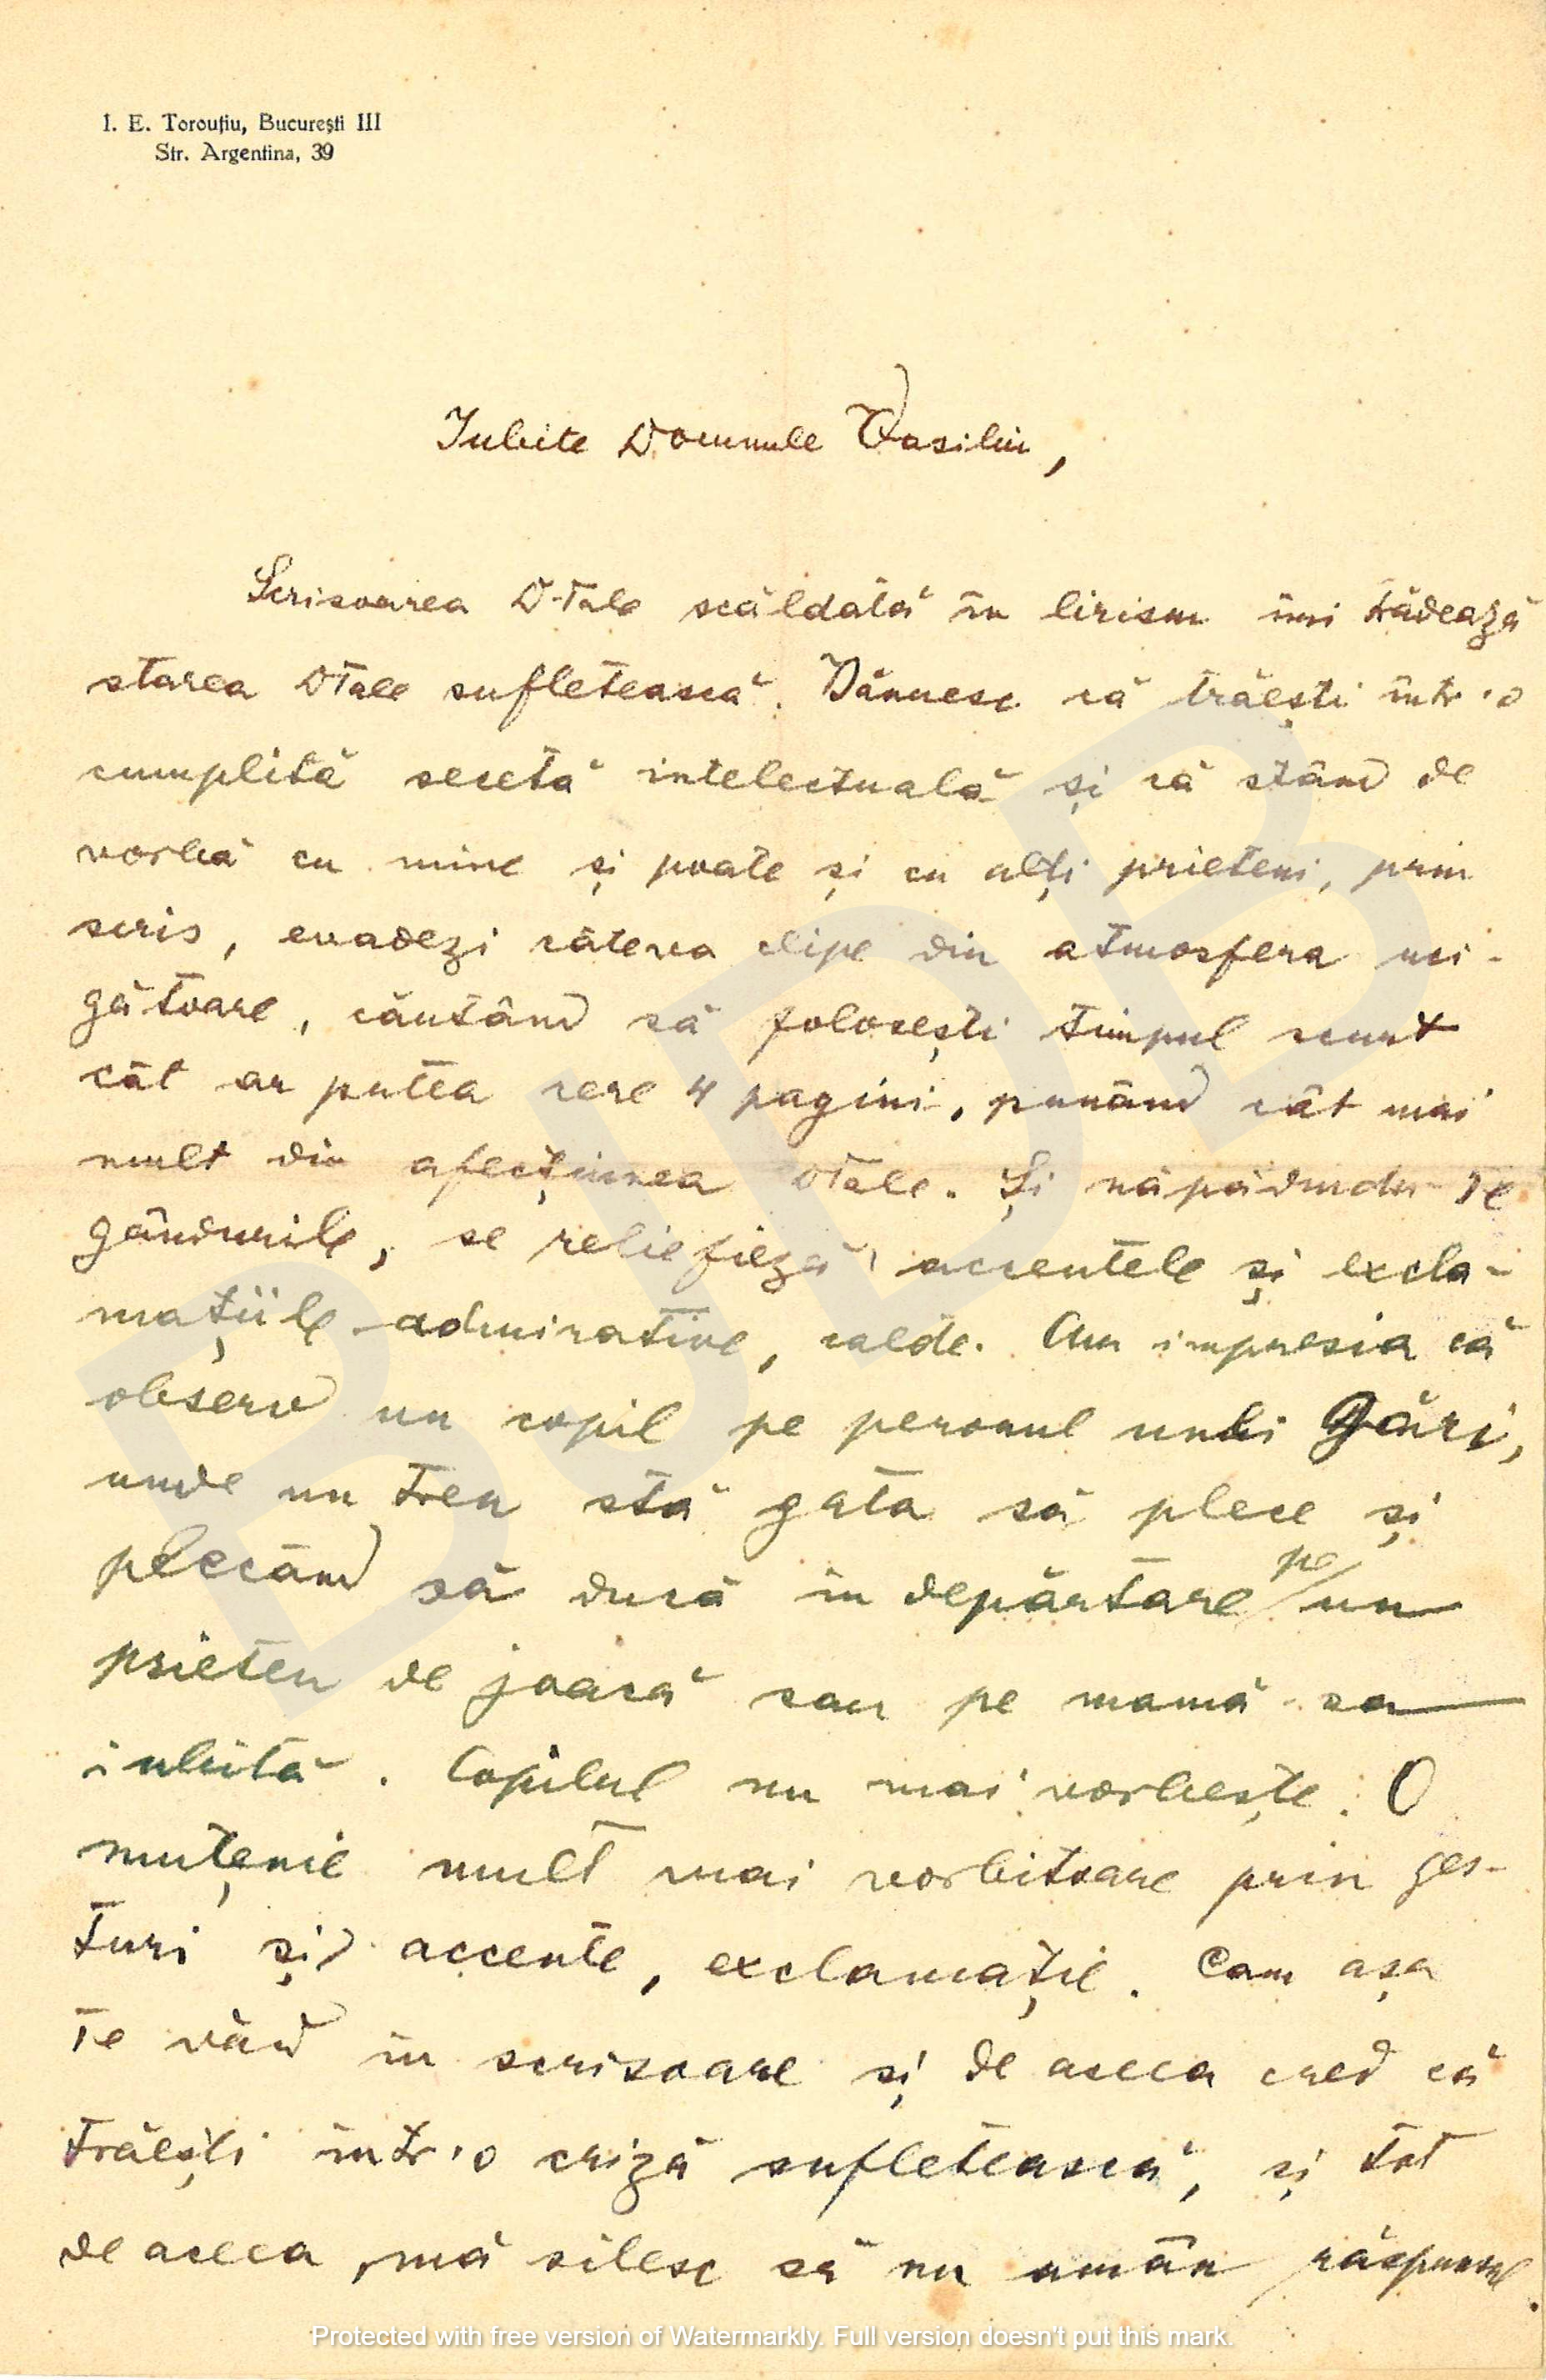 I. E. Torouțiu, București III
Str. Argentina, 39
Iubite Domnule Vasiliu,
Scrisoarea D-Tale scăldată în lirism îmi trădează
starea DTale sufletească. Bănuesc că trăești într'o
cumplită secetă intelectuală și că stând de
vorbă cu mine și poate și cu alți prieteni, prin
scris, evadezi câteva clipe din atmosfera uci-
gătoare, căutând să folosești timpul scurt
cât ar putea cere 4 pagini, punând cât mai
mult din afecțiunea DTale. Și năpădindu-Te
gândurile, se reliefiază accentele și excla-
mațiile admirative, calde. Am impresia că
observ un copil pe peronul unei Gări,
unde un tren stă gata să plece și
plecând să ducă în depărtare pe un
prieten de joacă sau pe mamă-sa
iubită. Copilul nu mai vorbește. O
muțenie mult mai vorbitoare prin ges-
turi și accente, exclamație. Cam așa
Te văd în scrisoare și de aceea cred că
trăești într'o criză sufletească, și tot
de aceea mă silesc să nu amân răspunsul.
BJDB
Protected with free version of Watermarkly. Full version doesn't put this mark.